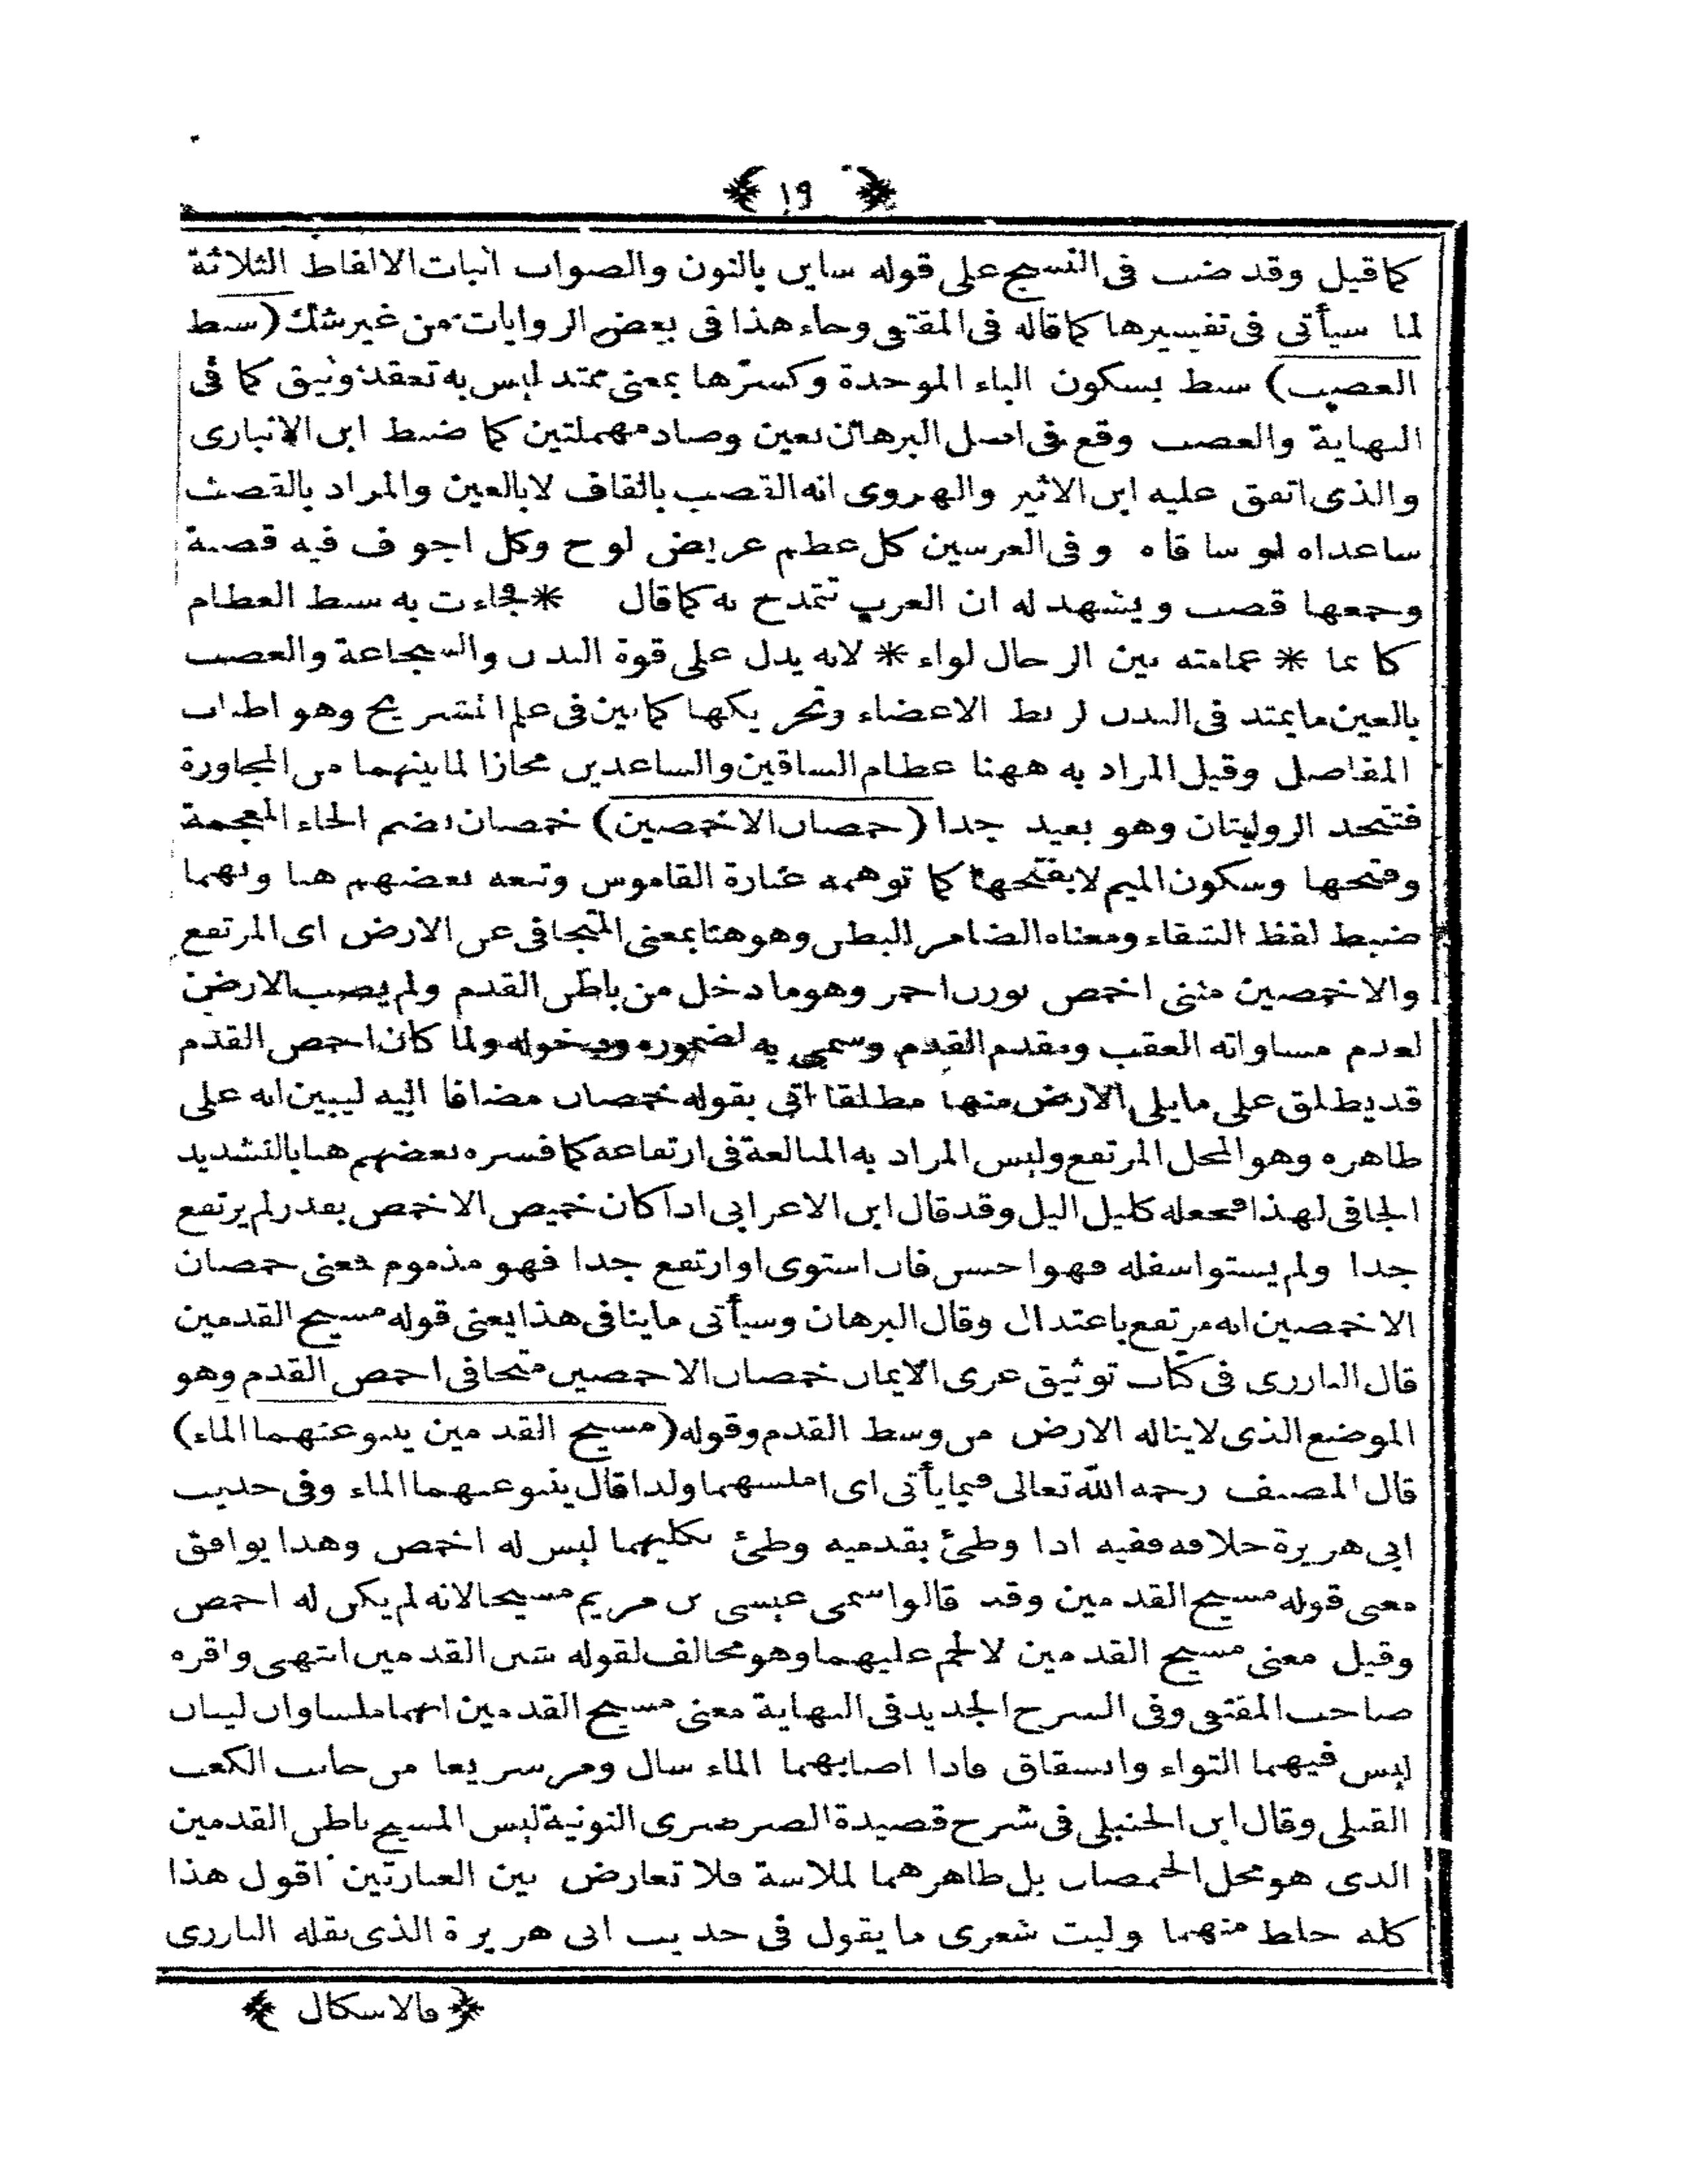 ﴿ ١٩ ﴾
كما قيل وقد ضبب فى النسخ على قوله ساين بالنون والصواب اثبات الالفاظ الثلاثة
لما سيأتى فى تفسيرها كما قاله فى المقتفى وجاء هذا فى بعض الروايات من غير شك (سبط
العصب) سبط بسكون الباء الموحدة وكسرها بمعنى ممتد ليس به تعقد ونبق كما فى
النهاية والعصب وقع فى اصل البرهان بعين وصاد مهملتين كما ضبط ابن الانبارى
والذى اتفق عليه ابن الاثير والهروى انه القصب بالقاف لا بالعين والمراد بالقصب
ساعداه لو ساقاه وفى العرسين كل عظم عريض لوح وكل اجوف فيه قصبة
وجمعها قصب ويشهد له ان العرب تتمدح به كما قال * فجاءت به سبط العظام
كانما * عمامته بين الرجال لواء * لانه يدل على قوة البدن والشجاعة والعصب
بالعين ما يمتد فى البدن لربط الاعضاء وتحريكها كما بين فى علم التشريح وهو اطناب
المفاصل وقيل المراد به ههنا عظام الساقين والساعدين مجازا لما بينهما من المجاورة
فتتحد الروايتان وهو بعيد جدا (خمصان الاخمصين) خمصان بضم الخاء المعجمة
وفتحها وسكون الميم لا بفتحها كما توهمه عبارة القاموس وتبعه بعضهم هنا وبهما
ضبط لفظ الشفاء ومعناه الضامر البطن وهو هنا بمعنى المتجافى عن الارض اى المرتفع
والاخمصين مثنى اخمص بوزن احمر وهو ما دخل من باطن القدم ولم يصب الارض
لعدم مساواته العقب ومقدم القدم وسمى به لضموره ودخوله ولما كان اخمص القدم
قد يطلق على ما يلى الارض منها مطلقا اتى بقوله خمصان مضافا اليه ليبين انه على
ظاهره وهو المحل المرتفع وليس المراد به المبالغة فى ارتفاعه كما فسره بعضهم هنا بالشديد
الجافى لهذا فجعله كليل اليل وقد قال ابن الاعرابى اذا كان خميص الاخمص بقدر لم يرتفع
جدا ولم يستو اسفله فهو احسن فان استوى او ارتفع جدا فهو مذموم فمعنى خمصان
الاخمصين انه مرتفع باعتدال وقال البرهان وسيأتى ما ينافى هذا يعنى قوله مسيح القدمين
قال البارزى فى كتاب توثيق عرى الايمان خمصان الاخمصين متجافى اخمص القدم وهو
الموضع الذى لا يناله الارض من وسط القدم وقوله (مسيح القدمين ينبو عنهما الماء)
قال المصنف رحمه الله تعالى فيما يأتى اى املسهما ولذا قال ينبو عنهما الماء وفى حديث
ابى هريرة خلافه ففيه اذا وطئ بقدميه وطئ بكليهما ليس له اخمص وهذا يوافق
معنى قوله مسيح القدمين وقد قالوا سمى عيسى بن مريم مسيحا لانه لم يكن له اخمص
وقيل معنى مسيح القدمين لا لحم عليهما وهو مخالف لقوله شثن القدمين انتهى واقره
صاحب المقتفى وفى الشرح الجديد فى النهاية معنى مسيح القدمين انهما ملساوان لينان
ليس فيهما التواء وانشقاق فاذا اصابهما الماء سال ومر سريعا من جانب الكعب
القبلى وقال ابن الحنبلى فى شرح قصيدة الصرصرى النونية ليس المسيح باطن القدمين
الذى هو محل الخمصان بل ظاهرهما لملاسة فلا تعارض بين العبارتين اقول هذا
كله خلط منهما وليت شعرى ما يقول فى حديث ابى هريرة الذى نقله البارزى
﴿ فالاشكال ﴾